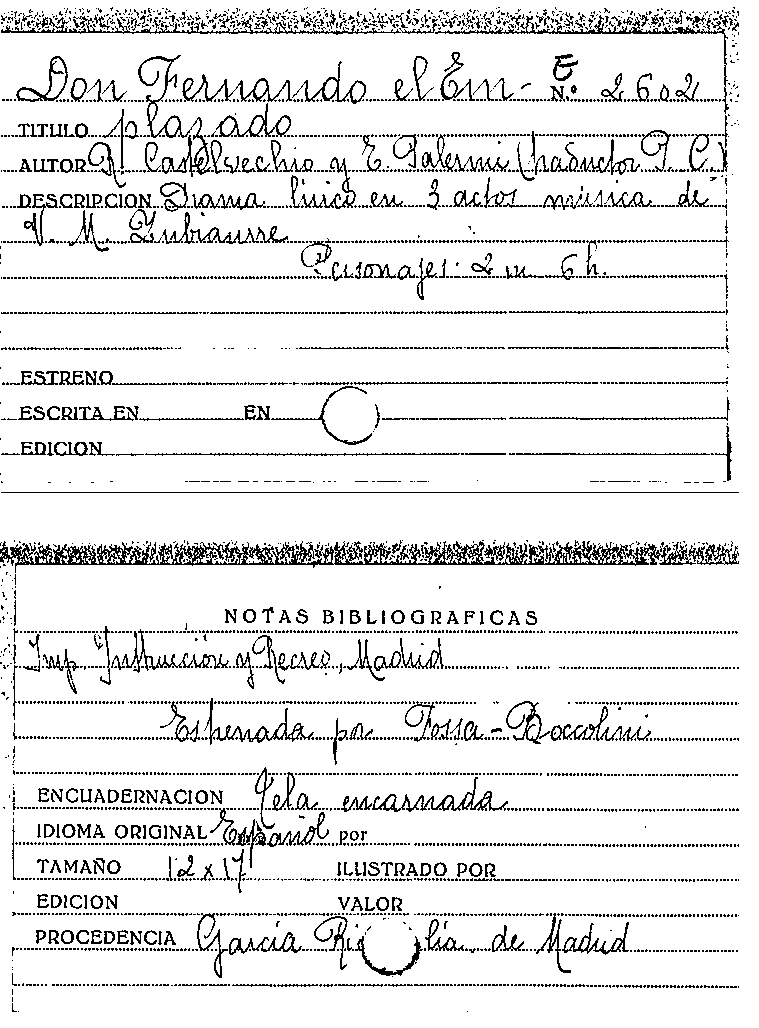 Don Fernando el Em- E
N.º 2602
TITULO plazado
AUTOR R. Castelvechio y E. Palermi (traductor P. C.)
DESCRIPCION Drama lírico en 3 actos música de
V. M. Zubiaurre
Personajes: 2 m 6 h.
ESTRENO
ESCRITA EN EN
EDICION
NOTAS BIBLIOGRAFICAS
Imp. "Instrucción y Recreo, Madrid
Estrenada por Fossa-Boccolini
ENCUADERNACION Tela encarnada
IDIOMA ORIGINAL Español por
TAMAÑO 12 x 17 ILUSTRADO POR
EDICION VALOR
PROCEDENCIA García de Madrid